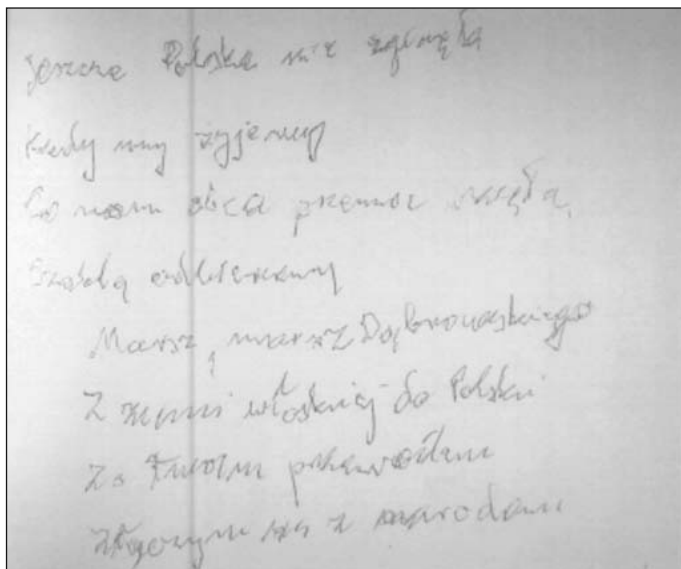 Jeszcze Polska nie zginęła
Kiedy my żyjemy
Co nam obca przemoc wzięła
Szablą odbierzemy
Marsz, marsz Dąbrowskiego
Z ziemi włoskiej do Polski
Za Twoim przewodem
Złączym się z narodem